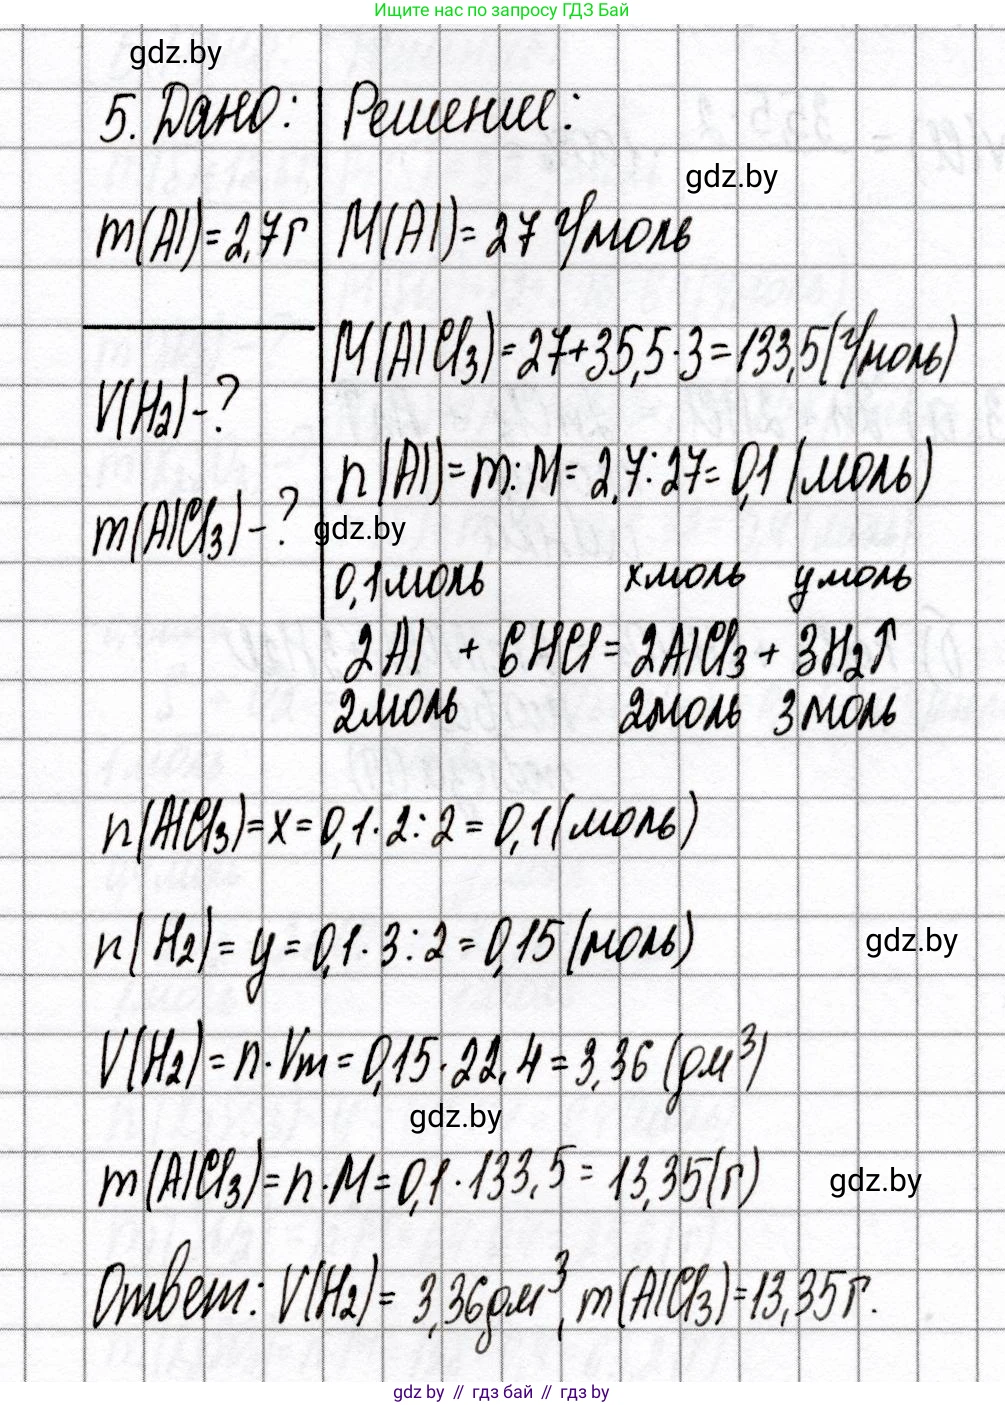 Ищите нас по запросу ГДЗ Бай
gdz.by
5. Дано:
Решение:
gdz.by
m(Al)=2,7г
M(Al)=27 г/моль
M(AlCl₃)=27+35,5·3=133,5(г/моль)
V(H₂)-?
n(Al)=m:M=2,7:27=0,1(моль)
m(AlCl₃)-?
gdz.by
0,1моль xмоль yмоль
2Al + 6HCl=2AlCl₃+3H₂↑
2моль 2моль 3моль
n(AlCl₃)=x=0,1·2:2=0,1(моль)
n(H₂)=y=0,1·3:2=0,15(моль)
gdz.by
V(H₂)=n·Vm=0,15·22,4=3,36(дм³)
gdz.by
m(AlCl₃)=n·M=0,1·133,5=13,35(г)
gdz.by
Ответ: V(H₂)=3,36дм³, m(AlCl₃)=13,35г.
gdz by // гдз бай // gdz by